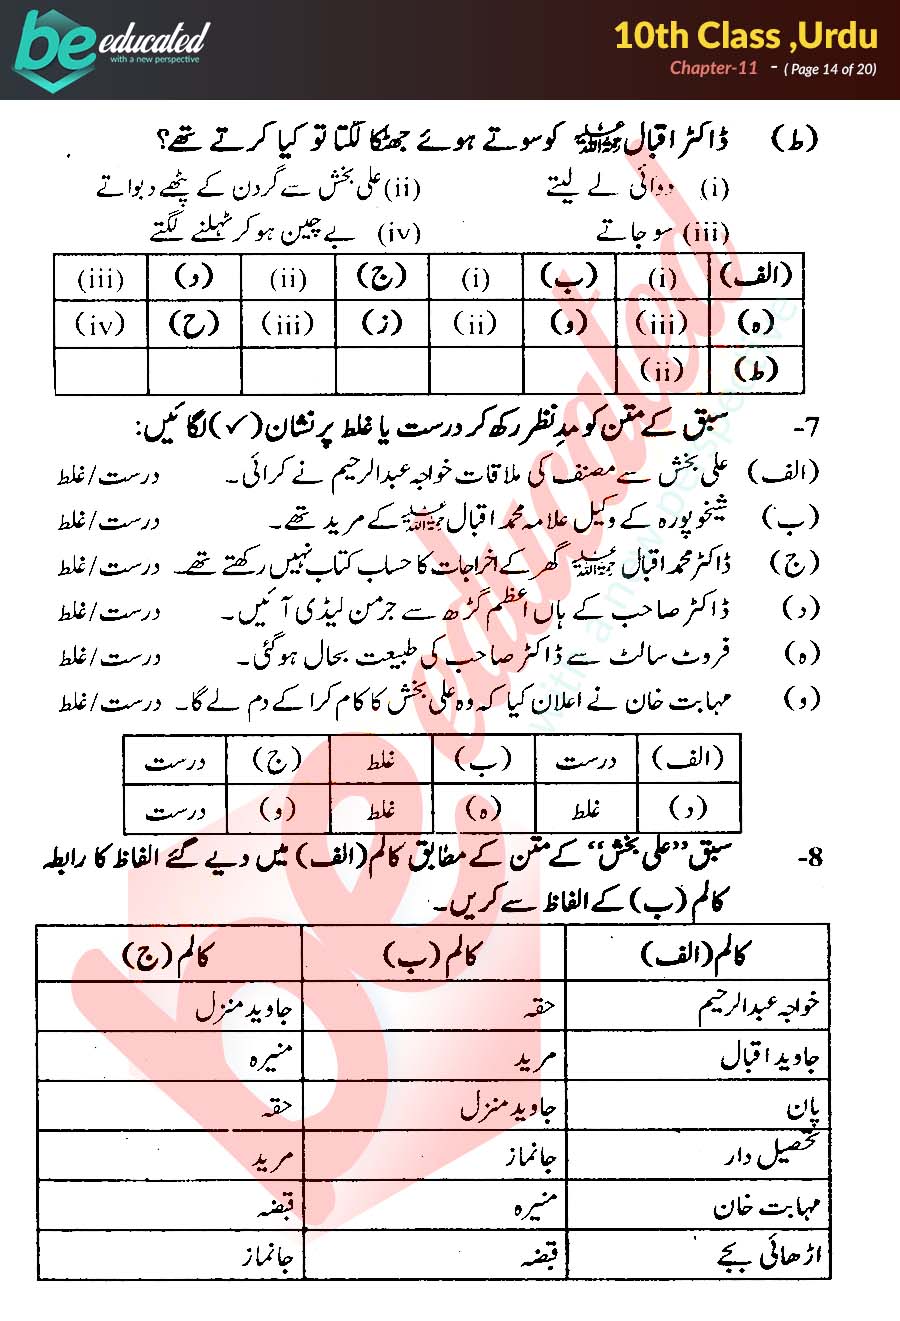 be educated
with a new perspective
10th Class ,Urdu
Chapter-11 - ( Page 14 of 20)
(ط) ڈاکٹر اقبالؒ کو سوتے ہوئے جھٹکا لگتا تو کیا کرتے تھے؟
(i) دوائی لے لیتے (ii) علی بخش سے گردن کے پٹھے دبواتے
(iii) سو جاتے (iv) بے چین ہو کر ٹہلنے لگتے
(الف) (i) (ب) (i) (ج) (ii) (د) (iii)
(ہ) (iii) (و) (ii) (ز) (iii) (ح) (iv)
(ط) (ii)
7- سبق کے متن کو مدِنظر رکھ کر درست یا غلط پر نشان (✓) لگائیں:
(الف) علی بخش سے مصنف کی ملاقات خواجہ عبدالرحیم نے کرائی۔ درست/غلط
(ب) شیخوپورہ کے وکیل علامہ محمد اقبالؒ کے مرید تھے۔ درست/غلط
(ج) ڈاکٹر محمد اقبالؒ گھر کے اخراجات کا حساب کتاب نہیں رکھتے تھے۔ درست/غلط
(د) ڈاکٹر صاحب کے ہاں اعظم گڑھ سے جرمن لیڈی آئیں۔ درست/غلط
(ہ) فروٹ سالٹ سے ڈاکٹر صاحب کی طبیعت بحال ہوگئی۔ درست/غلط
(و) مہابت خان نے اعلان کیا کہ وہ علی بخش کا کام کرا کے دم لے گا۔ درست/غلط
(الف) درست (ب) غلط (ج) درست
(د) غلط (ہ) غلط (و) درست
8- سبق "علی بخش" کے متن کے مطابق کالم (الف) میں دیے گئے الفاظ کا رابطہ
کالم (ب) کے الفاظ سے کریں۔
کالم (الف) کالم (ب) کالم (ج)
خواجہ عبدالرحیم حقہ جاوید منزل
جاوید اقبال مرید منیرہ
پان جاوید منزل حقہ
تحصیل دار جانماز مرید
مہابت خان منیرہ قبضہ
اڑھائی بجے قبضہ جانماز
be educated
with a new perspective